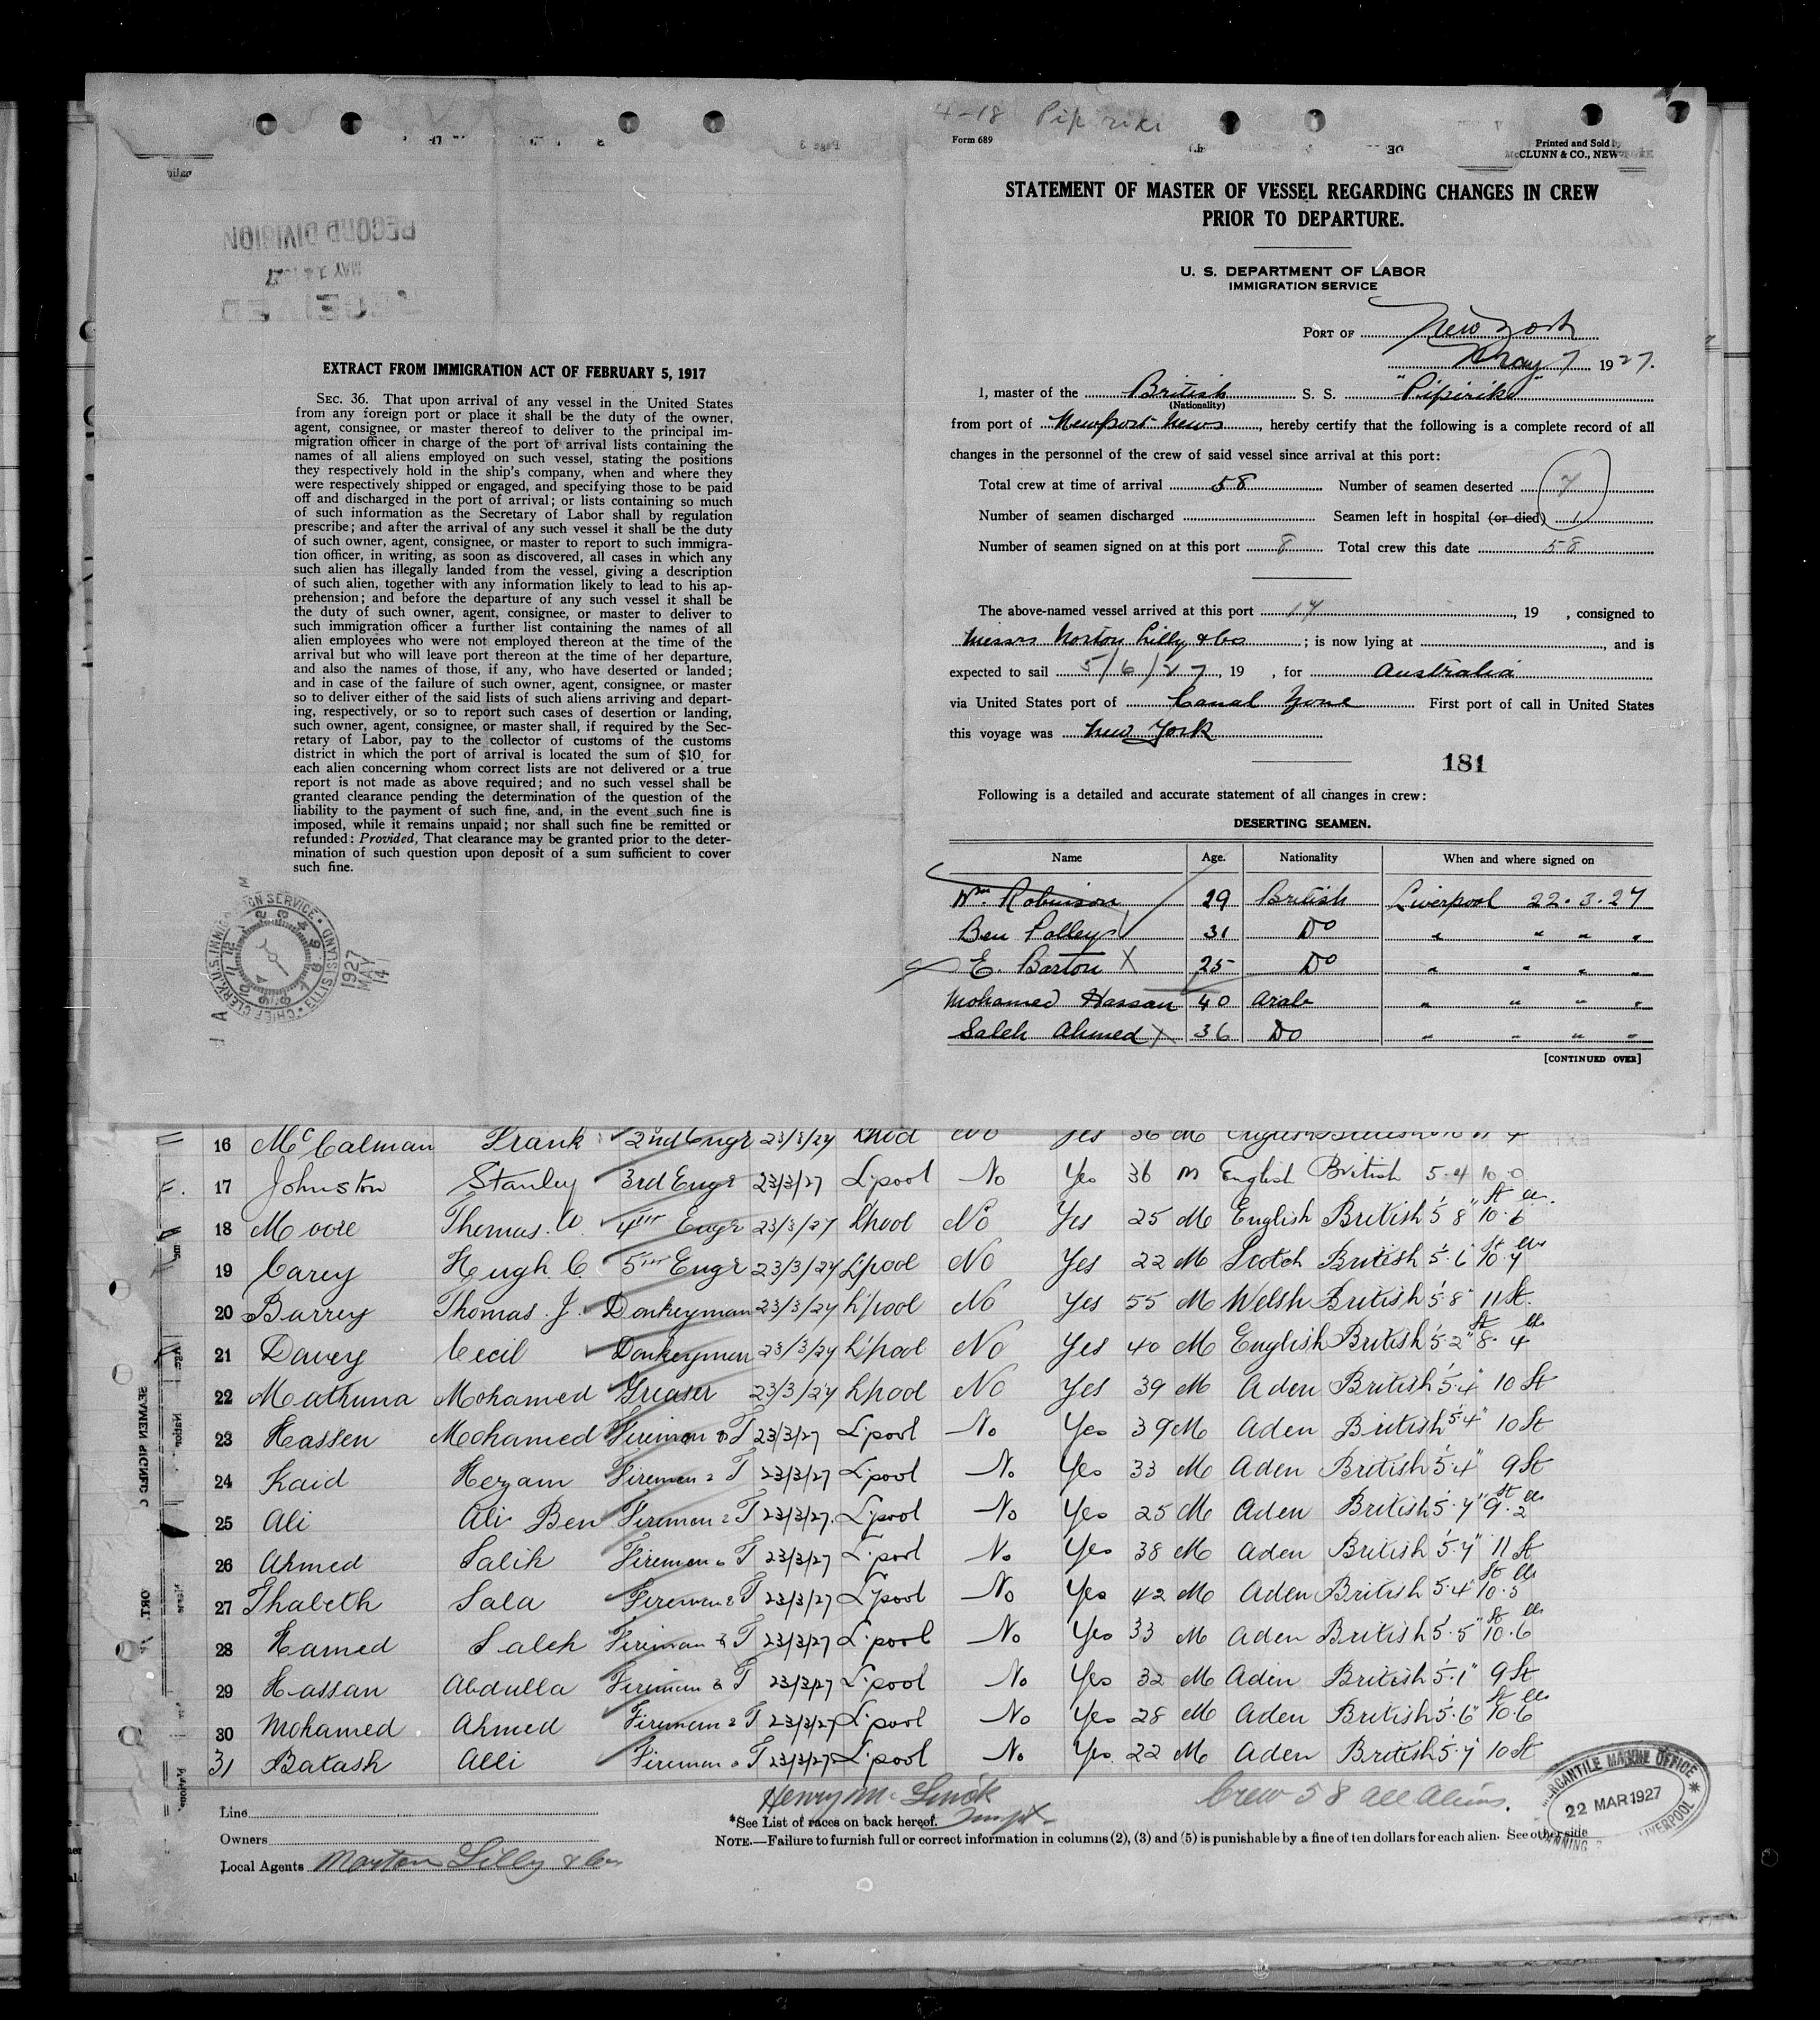 4-18 Pipiriki
Form 689
Printed and Sold by
McCLUNN & CO., NEW YORK
STATEMENT OF MASTER OF VESSEL REGARDING CHANGES IN CREW
PRIOR TO DEPARTURE.
U. S. DEPARTMENT OF LABOR
IMMIGRATION SERVICE
PORT OF New York
May 7 1927.
I, master of the British S. S. "Pipiriki"
(Nationality)
from port of Newport News, hereby certify that the following is a complete record of all
changes in the personnel of the crew of said vessel since arrival at this port:
Total crew at time of arrival 58 Number of seamen deserted 7
Number of seamen discharged Seamen left in hospital (or died) 1
Number of seamen signed on at this port 8 Total crew this date 58
The above-named vessel arrived at this port 17, 19 , consigned to
Messrs Norton Lilly & Co; is now lying at , and is
expected to sail 5/6/27, 19 , for Australia
via United States port of Canal Zone First port of call in United States
this voyage was New York
181
Following is a detailed and accurate statement of all changes in crew:
DESERTING SEAMEN.
Name Age. Nationality When and where signed on
Wm. Robinson 29 British Liverpool 22.3.27
Ben Polleys 31 Do " " " "
E. Barton X 25 Do " " " "
Mohamed Hassan 40 Arab " " " "
Saleh Ahmed X 36 Do " " " "
[CONTINUED OVER]
RECORD DIVISION
MAY 14 1927
RECEIVED
EXTRACT FROM IMMIGRATION ACT OF FEBRUARY 5, 1917
SEC. 36. That upon arrival of any vessel in the United States
from any foreign port or place it shall be the duty of the owner,
agent, consignee, or master thereof to deliver to the principal im-
migration officer in charge of the port of arrival lists containing the
names of all aliens employed on such vessel, stating the positions
they respectively hold in the ship's company, when and where they
were respectively shipped or engaged, and specifying those to be paid
off and discharged in the port of arrival; or lists containing so much
of such information as the Secretary of Labor shall by regulation
prescribe; and after the arrival of any such vessel it shall be the duty
of such owner, agent, consignee, or master to report to such immigra-
tion officer, in writing, as soon as discovered, all cases in which any
such alien has illegally landed from the vessel, giving a description
of such alien, together with any information likely to lead to his ap-
prehension; and before the departure of any such vessel it shall be
the duty of such owner, agent, consignee, or master to deliver to
such immigration officer a further list containing the names of all
alien employees who were not employed thereon at the time of the
arrival but who will leave port thereon at the time of her departure,
and also the names of those, if any, who have deserted or landed;
and in case of the failure of such owner, agent, consignee, or master
so to deliver either of the said lists of such aliens arriving and depart-
ing, respectively, or so to report such cases of desertion or landing,
such owner, agent, consignee, or master shall, if required by the Sec-
retary of Labor, pay to the collector of customs of the customs
district in which the port of arrival is located the sum of $10 for
each alien concerning whom correct lists are not delivered or a true
report is not made as above required; and no such vessel shall be
granted clearance pending the determination of the question of the
liability to the payment of such fine, and, in the event such fine is
imposed, while it remains unpaid; nor shall such fine be remitted or
refunded: Provided, That clearance may be granted prior to the deter-
mination of such question upon deposit of a sum sufficient to cover
such fine.
CHIEF CLERK U.S. IMMIGRATION SERVICE ELLIS ISLAND
1927 MAY 14
16 McCalman Frank 2nd Engr 23/3/27 L'pool No Yes 36 M English British
17 Johnston Stanley 3rd Engr 23/3/27 L'pool No Yes 36 M English British 5.4 10.0
18 Moore Thomas. W 4th Engr 23/3/27 L'pool No Yes 25 M English British 5'8" 10.6
19 Carey Hugh. C. 5th Engr 23/3/27 L'pool No Yes 22 M Scotch British 5'.6 10.7
20 Barrey Thomas. J. Donkeyman 23/3/27 L'pool No Yes 55 M Welsh British 5'.8" 11 St.
21 Davey Cecil Donkeyman 23/3/27 L'pool No Yes 40 M English British 5'.2" 8.4
22 Mathuna Mohamed Greaser 23/3/27 L'pool No Yes 39 M Aden British 5'.4" 10 St
23 Hassen Mohamed Fireman & T 23/3/27 L'pool No Yes 39 M Aden British 5'4" 10 St
24 Kaid Hezam Fireman & T 23/3/27 L'pool No Yes 33 M Aden British 5'.4" 9 St
25 Ali Ali Ben Fireman & T 23/3/27. L'pool No Yes 25 M Aden British 5'.7" 9.2
26 Ahmed Salih Fireman & T 23/3/27 L'pool No Yes 38 M Aden British 5'.7" 11 St
27 Thabeth Sala Fireman & T 23/3/27 L'pool No Yes 42 M Aden British 5.4" 10.5
28 Hamed Saleh Fireman & T 23/3/27 L'pool No Yes 33 M Aden British 5'.5" 10.6
29 Hassan Abdulla Fireman & T 23/3/27 L'pool No Yes 32 M Aden British 5'.1" 9 St
30 Mohamed Ahmed Fireman & T 23/3/27 L'pool No Yes 28 M Aden British 5'.6" 10.6
31 Batash Alli Fireman & T 23/3/27 L'pool No Yes. 22 M Aden British 5'.7" 10 St
Crew 58 all aliens.
MERCANTILE MARINE OFFICE
22 MAR 1927
LIVERPOOL
Line
*See List of races on back hereof.
Owners
NOTE.—Failure to furnish full or correct information in columns (2), (3) and (5) is punishable by a fine of ten dollars for each alien. See other side
Local Agents Norton Lilly & Co